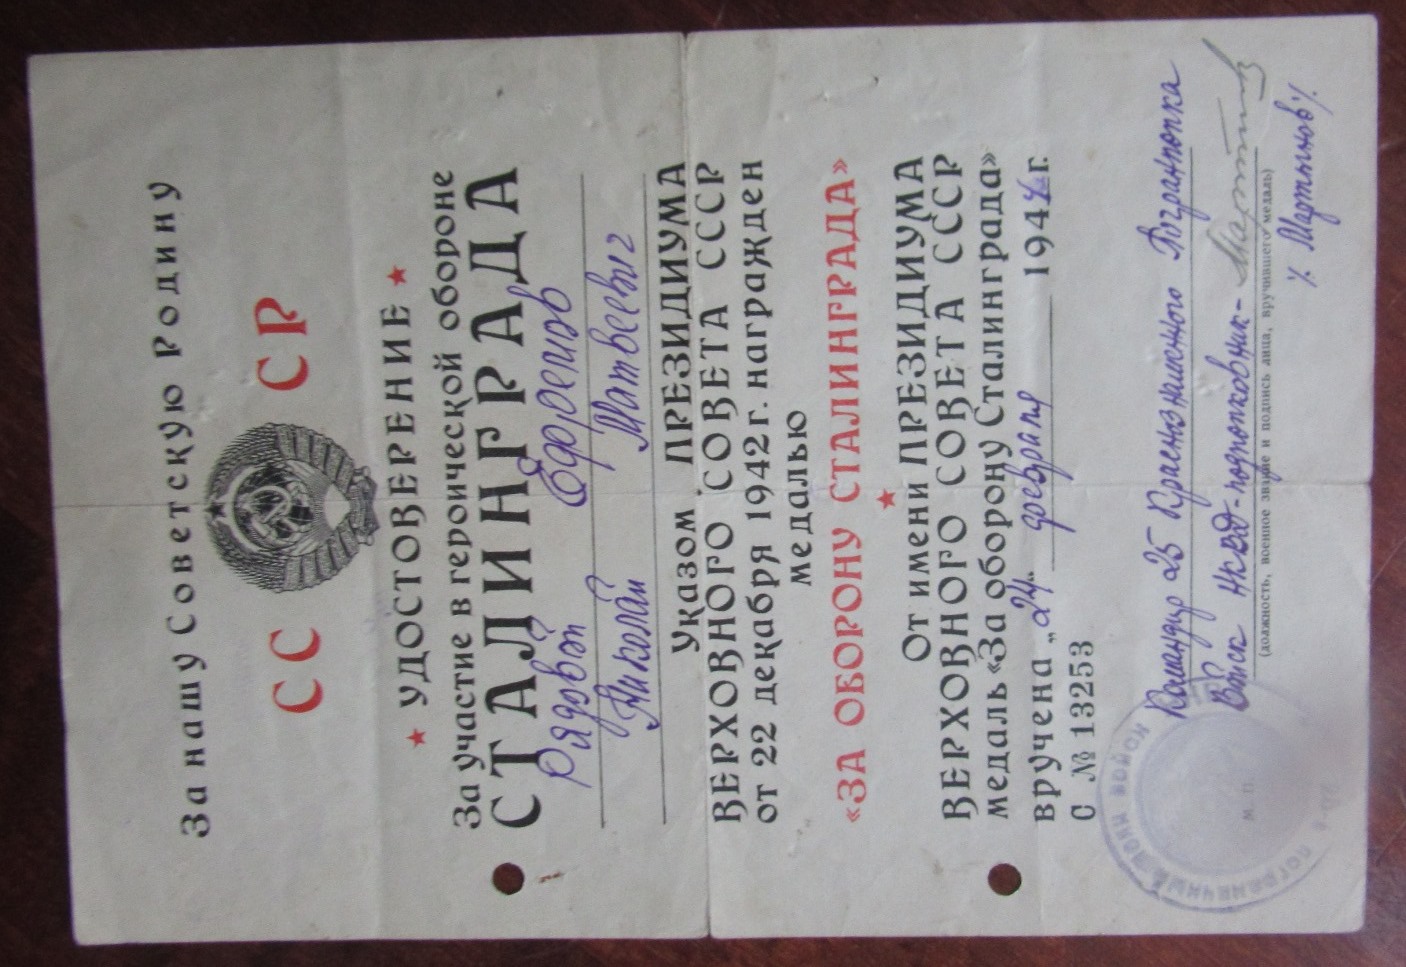 За нашу Советскую Родину
СС СР
УДОСТОВЕРЕНИЕ
За участие в героической обороне
СТАЛИНГРАДА
Рядовой Ефременков
Николай Матвеевич
Указом ПРЕЗИДИУМА
ВЕРХОВНОГО СОВЕТА СССР
от 22 декабря 1942 г. награжден
медалью
«ЗА ОБОРОНУ СТАЛИНГРАДА»
От имени ПРЕЗИДИУМА
ВЕРХОВНОГО СОВЕТА СССР
медаль «За оборону Сталинграда»
вручена „24“ февраля 1944 г.
С № 13253
Командир 25 Краснознаменного Погранполка
Войск НКВД-подполковник-
(должность, военное звание и подпись лица, вручившего медаль)
/. Мартынов /.
М. П.
ПОГРАНИЧНЫЙ ПОЛК ВОЙСК